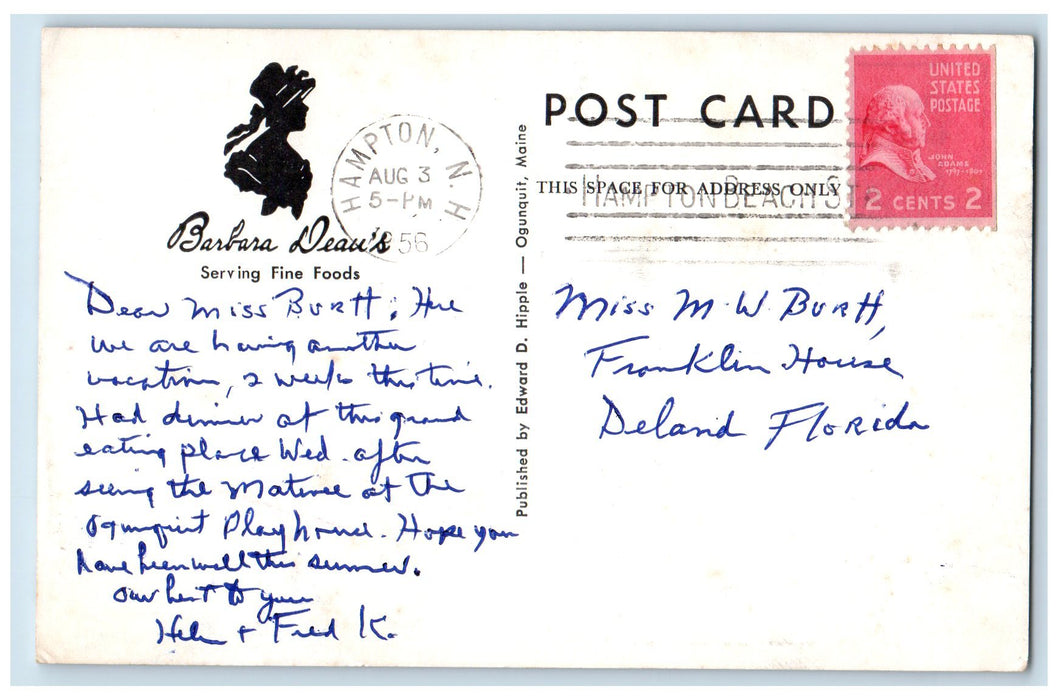 Barbara Dean's
Serving Fine Foods
HAMPTON, N.H.
AUG 3
5-PM
1956
Dear Miss Burtt; Here
we are having another
vacation, 2 weeks this time.
Had dinner at this grand
eating place Wed. after
seeing the Matinee at the
Ogunquit Playhouse. Hope you
have been well this summer.
Our best to you
Helen + Fred K.
Published by Edward D. Hipple — Ogunquit, Maine
POST CARD
THIS SPACE FOR ADDRESS ONLY
HAMPTON BEACH ST
UNITED
STATES
POSTAGE
JOHN
ADAMS
1797-1801
2 CENTS 2
Miss M W Burtt,
Franklin House
Deland Florida